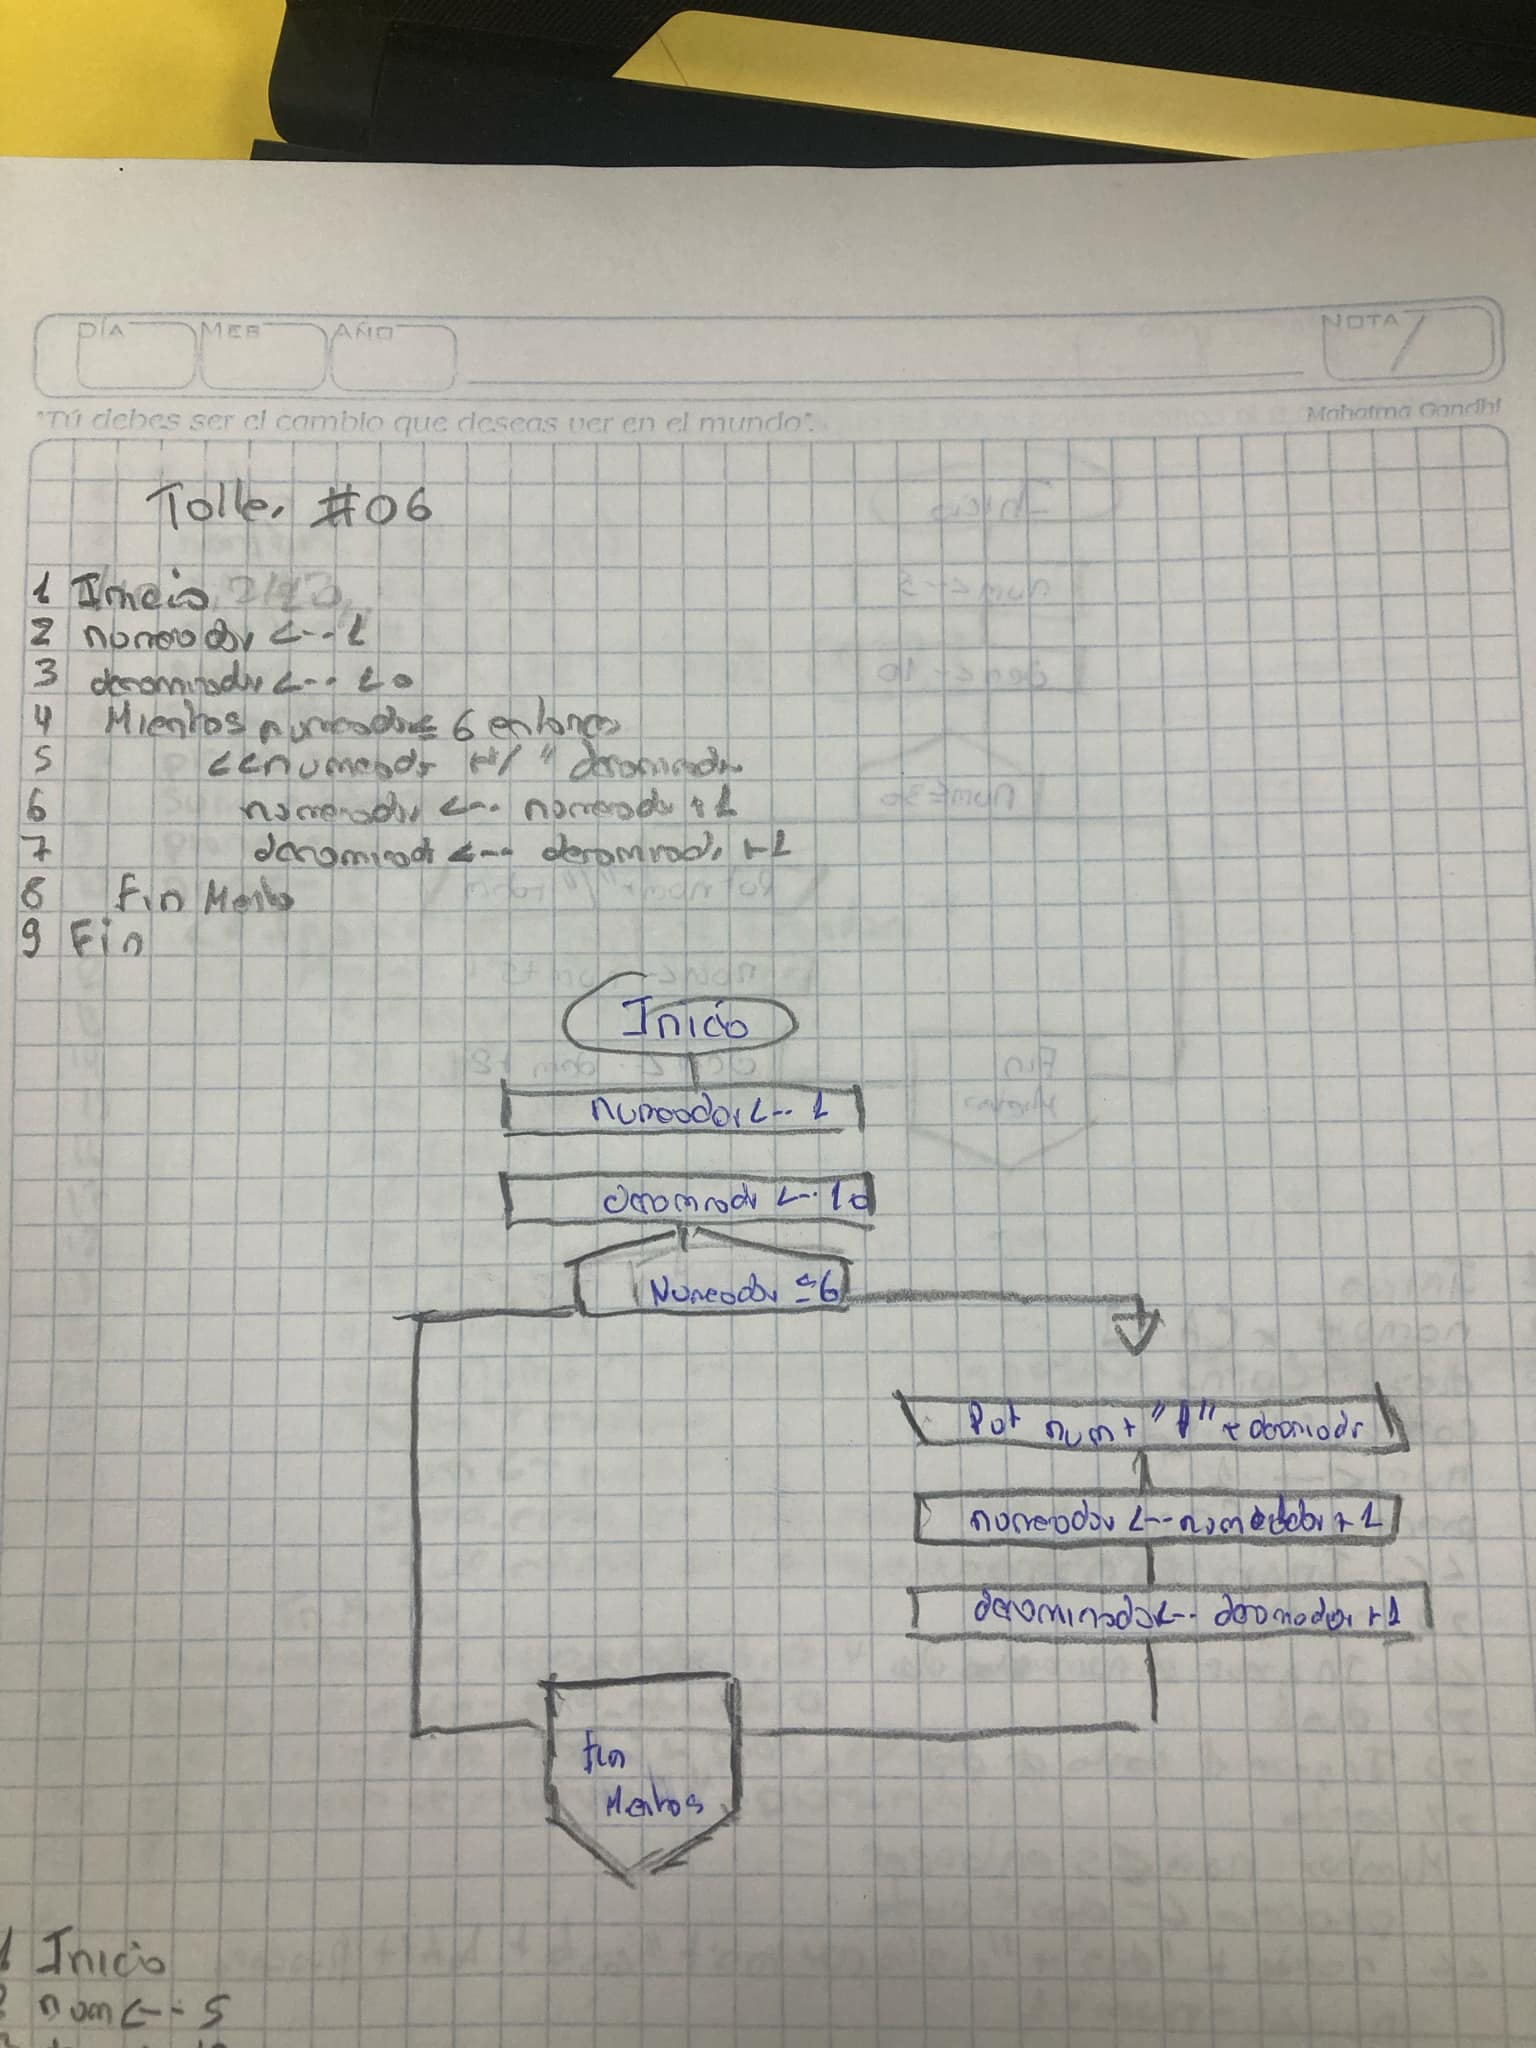 DÍA MES AÑO NOTA
"Tú debes ser el cambio que deseas ver en el mundo". Mahatma Gandhi
Taller #06
1 Inicio
2 numerador <-- 1
3 denominador <-- 10
4 Mientras numerador ≤ 6 entonces
5 <<numerador +"/" denominador
6 numerador <-- numerador +1
7 denominador <-- denominador +1
8 Fin Mientras
9 Fin
Inicio
numerador <-- 1
denominador <-- 10
Numerador ≤ 6
num + "/" + denominador
numerador <-- numerador + 1
denominador <-- denominador +1
Fin
Mientras
1 Inicio
num <-- 5